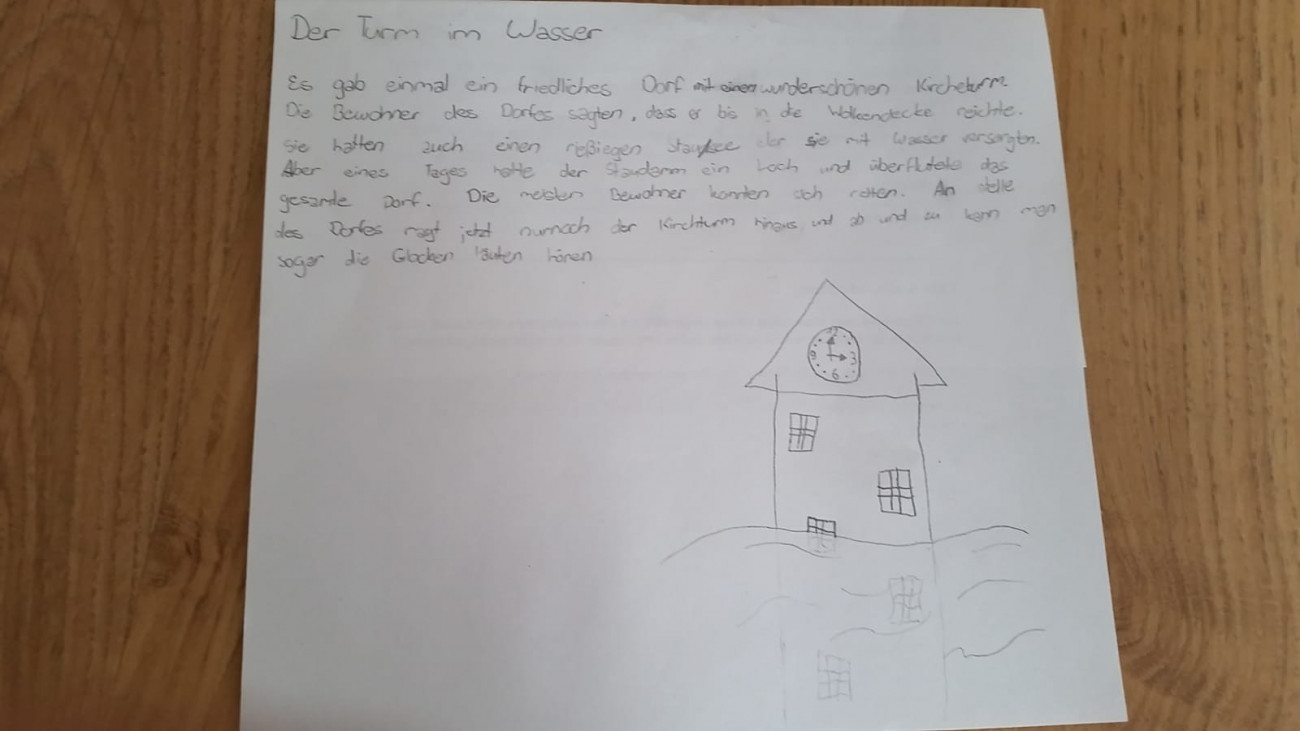 Der Turm im Wasser
Es gab einmal ein friedliches Dorf mit einem wunderschönen Kircheturm.
Die Bewohner des Dorfes sagten, dass er bis in die Wolkendecke reichte.
Sie hatten auch einen rießiegen Stausee der sie mit Wasser versorgten.
Aber eines Tages hatte der Staudamm ein Loch und überflutete das
gesamte Dorf. Die meisten Bewohner konnten sich retten. An stelle
des Dorfes ragt jetzt nurnoch der Kirchturm hinaus und ab und zu kann man
sogar die Glocken läuten hören
12
9 3
6